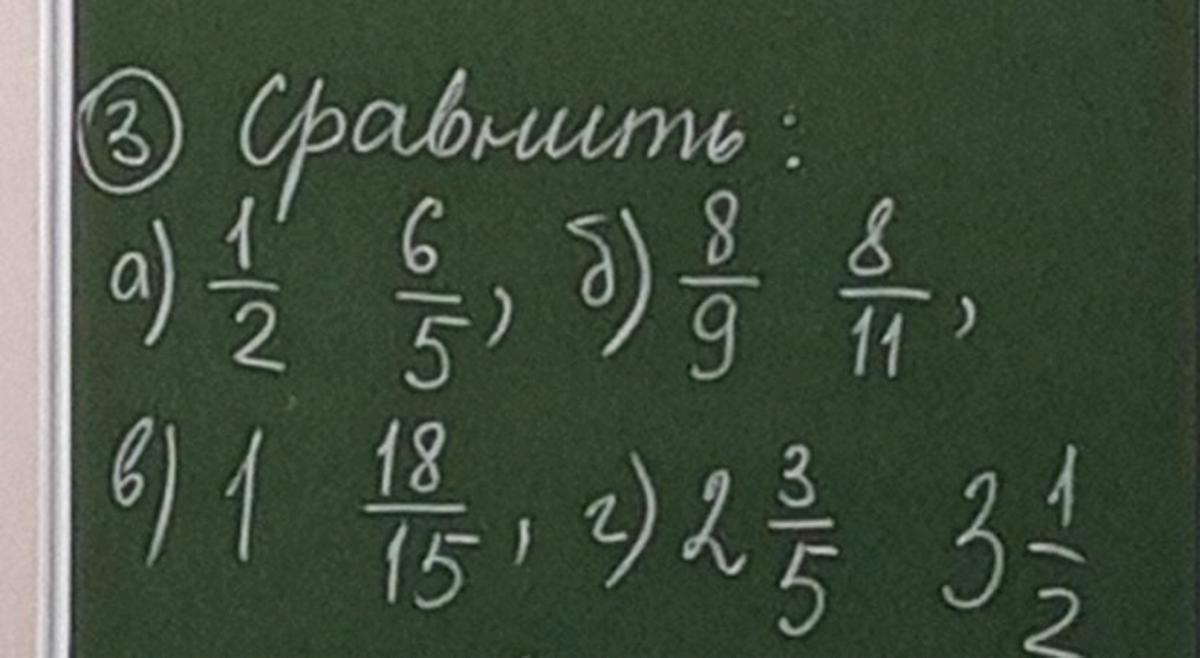 ③ Сравнить:
а) 1/2 6/5, б) 8/9 8/11,
в) 1 18/15, г) 2 3/5 3 1/2